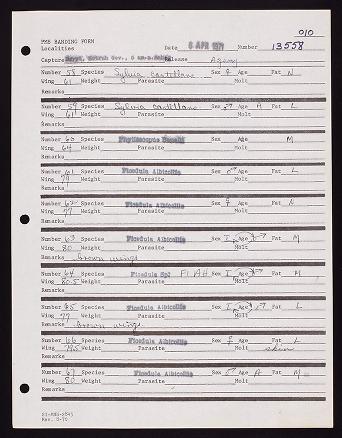 010
PMB BANDING FORM
Localities Date 6 APR 1971 Number 13558
Capture Egypt, Matruh Gov., Release Agamy
Number 58 Species Sylvia cantillans Sex ♀ Age Fat N
Wing 61 Weight Parasite Molt
Remarks
Number 59 Species Sylvia cantillans Sex ♂ Age A Fat L
Wing 61 Weight Parasite Molt
Remarks
Number 60 Species Phylloscopus Bonelli Sex Age Fat M
Wing 64 Weight Parasite Molt
Remarks
Number 61 Species Ficedula Albicollis Sex ♂ Age A Fat L
Wing 79 Weight Parasite Molt
Remarks
Number 62 Species Ficedula Albicollis Sex ♀ Age Fat N
Wing 77 Weight Parasite Molt
Remarks
Number 63 Species Ficedula Albicollis Sex I Age Fat M
Wing 80 Weight Parasite Molt
Remarks brown wings
Number 64 Species Ficedula Sp/ Sex I Age Fat M
Wing 80.5 Weight Parasite Molt
Remarks
Number 65 Species Ficedula Albicollis Sex I Age Fat L
Wing 77 Weight Parasite Molt
Remarks brown wings
Number 66 Species Ficedula Albicollis Sex Age Fat L
Wing 79.5 Weight Parasite Molt skin
Remarks
Number 67 Species Ficedula Albicollis Sex ♂ Age A Fat M
Wing 80 Weight Parasite Molt
Remarks
SI-MNH-2845
Rev. 8-70